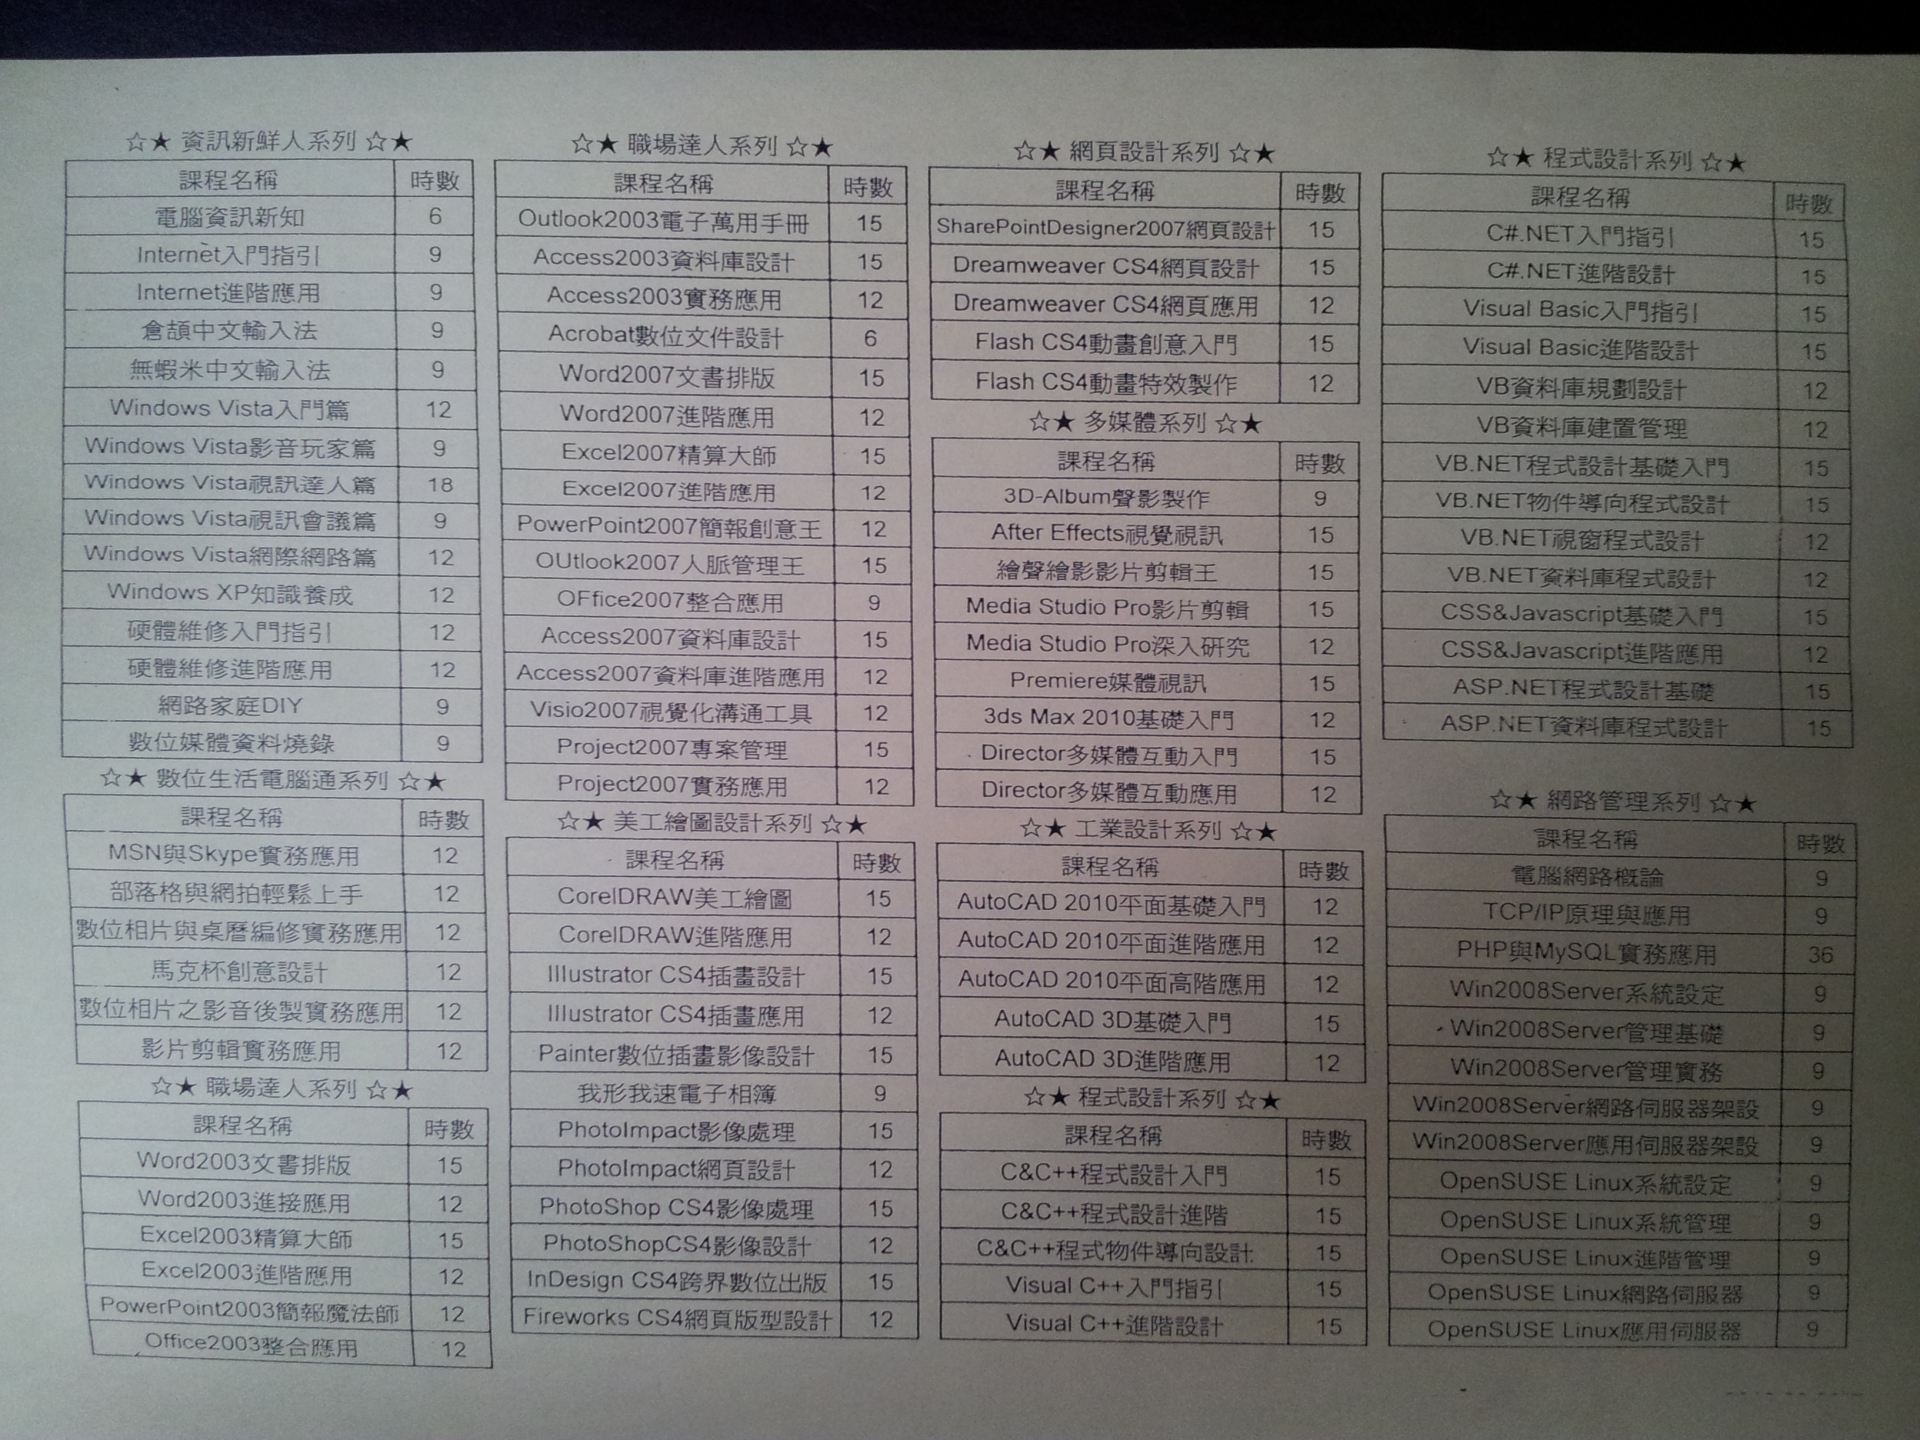 ☆★ 資訊新鮮人系列 ☆★
課程名稱 時數
電腦資訊新知 6
Internet入門指引 9
Internet進階應用 9
倉頡中文輸入法 9
無蝦米中文輸入法 9
Windows Vista入門篇 12
Windows Vista影音玩家篇 9
Windows Vista視訊達人篇 18
Windows Vista視訊會議篇 9
Windows Vista網際網路篇 12
Windows XP知識養成 12
硬體維修入門指引 12
硬體維修進階應用 12
網路家庭DIY 9
數位媒體資料燒錄 9
☆★ 數位生活電腦通系列 ☆★
課程名稱 時數
MSN與Skype實務應用 12
部落格與網拍輕鬆上手 12
數位相片與桌曆編修實務應用 12
馬克杯創意設計 12
數位相片之影音後製實務應用 12
影片剪輯實務應用 12
☆★ 職場達人系列 ☆★
課程名稱 時數
Word2003文書排版 15
Word2003進接應用 12
Excel2003精算大師 15
Excel2003進階應用 12
PowerPoint2003簡報魔法師 12
Office2003整合應用 12
☆★ 職場達人系列 ☆★
課程名稱 時數
Outlook2003電子萬用手冊 15
Access2003資料庫設計 15
Access2003實務應用 12
Acrobat數位文件設計 6
Word2007文書排版 15
Word2007進階應用 12
Excel2007精算大師 15
Excel2007進階應用 12
PowerPoint2007簡報創意王 12
OUtlook2007人脈管理王 15
OFfice2007整合應用 9
Access2007資料庫設計 15
Access2007資料庫進階應用 12
Visio2007視覺化溝通工具 12
Project2007專案管理 15
Project2007實務應用 12
☆★ 美工繪圖設計系列 ☆★
課程名稱 時數
CorelDRAW美工繪圖 15
CorelDRAW進階應用 12
Illustrator CS4插畫設計 15
Illustrator CS4插畫應用 12
Painter數位插畫影像設計 15
我形我速電子相簿 9
PhotoImpact影像處理 15
PhotoImpact網頁設計 12
PhotoShop CS4影像處理 15
PhotoShopCS4影像設計 12
InDesign CS4跨界數位出版 15
Fireworks CS4網頁版型設計 12
☆★ 網頁設計系列 ☆★
課程名稱 時數
SharePointDesigner2007網頁設計 15
Dreamweaver CS4網頁設計 15
Dreamweaver CS4網頁應用 12
Flash CS4動畫創意入門 15
Flash CS4動畫特效製作 12
☆★ 多媒體系列 ☆★
課程名稱 時數
3D-Album聲影製作 9
After Effects視覺視訊 15
繪聲繪影影片剪輯王 15
Media Studio Pro影片剪輯 15
Media Studio Pro深入研究 12
Premiere媒體視訊 15
3ds Max 2010基礎入門 12
Director多媒體互動入門 15
Director多媒體互動應用 12
☆★ 工業設計系列 ☆★
課程名稱 時數
AutoCAD 2010平面基礎入門 12
AutoCAD 2010平面進階應用 12
AutoCAD 2010平面高階應用 12
AutoCAD 3D基礎入門 15
AutoCAD 3D進階應用 12
☆★ 程式設計系列 ☆★
課程名稱 時數
C&C++程式設計入門 15
C&C++程式設計進階 15
C&C++程式物件導向設計 15
Visual C++入門指引 15
Visual C++進階設計 15
☆★ 程式設計系列 ☆★
課程名稱 時數
C#.NET入門指引 15
C#.NET進階設計 15
Visual Basic入門指引 15
Visual Basic進階設計 15
VB資料庫規劃設計 12
VB資料庫建置管理 12
VB.NET程式設計基礎入門 15
VB.NET物件導向程式設計 15
VB.NET視窗程式設計 12
VB.NET資料庫程式設計 12
CSS&Javascript基礎入門 15
CSS&Javascript進階應用 12
ASP.NET程式設計基礎 15
ASP.NET資料庫程式設計 15
☆★ 網路管理系列 ☆★
課程名稱 時數
電腦網路概論 9
TCP/IP原理與應用 9
PHP與MySQL實務應用 36
Win2008Server系統設定 9
Win2008Server管理基礎 9
Win2008Server管理實務 9
Win2008Server網路伺服器架設 9
Win2008Server應用伺服器架設 9
OpenSUSE Linux系統設定 9
OpenSUSE Linux系統管理 9
OpenSUSE Linux進階管理 9
OpenSUSE Linux網路伺服器 9
OpenSUSE Linux應用伺服器 9